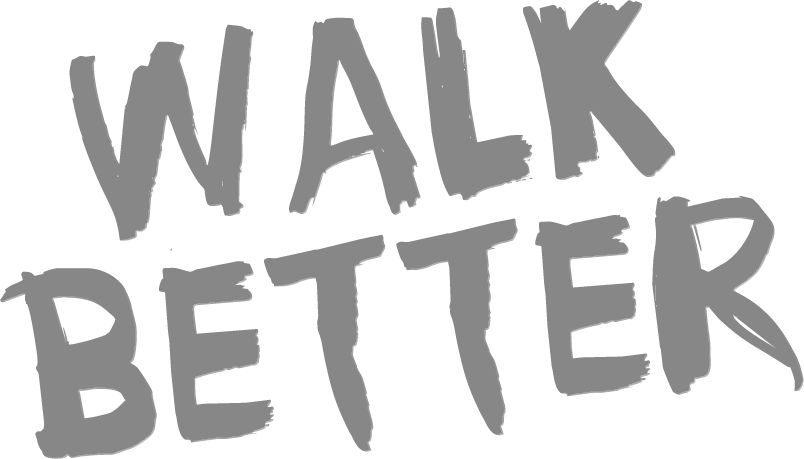 WALK
BETTER